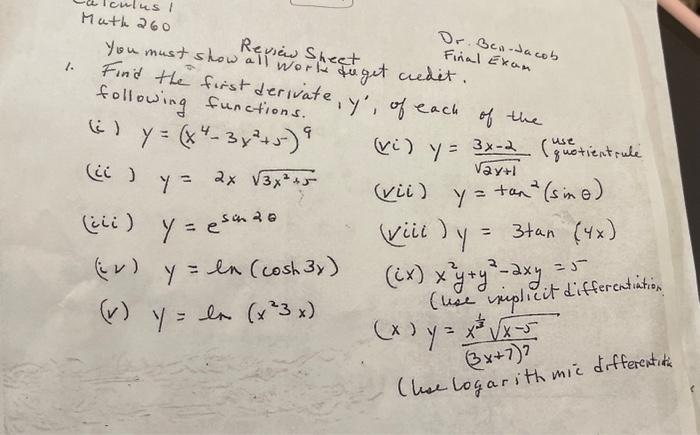 Calculus 1
Math 260
Dr. Ben-Jacob
Review Sheet
Final Exam
You must show all work to get credit.
1. Find the first derivate, y', of each of the
following functions.
(i) y = (x⁴-3x²+5)⁹
(ii) y = 2x √(3x²+5)
(iii) y = e^(sin 2θ)
(iv) y = ln (cosh 3x)
(v) y = ln (x²3x)
(vi) y = (3x-2)/√(2x+1) (use quotient rule
(vii) y = tan² (sin θ)
(viii) y = 3tan (4x)
(ix) x²y+y²-2xy = 5
(Use implicit differentiation
(x) y = x^(1/3) √(x-5) / (3x+7)⁷
(Use logarithmic differentiation